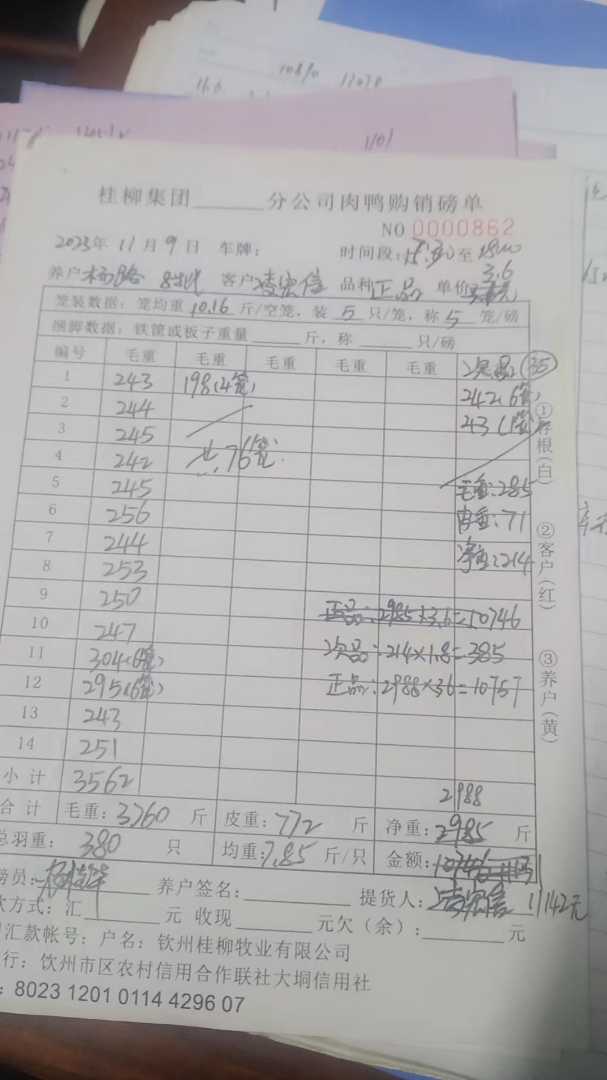 10870 11078
1101
桂柳集团______分公司肉鸭购销磅单
NO 0000862
2023年 11月 9日 车牌: 时间段: 15:30至18:00
养户 杨路 8出代 客户 凌宏信 品种 正品 单价 3.6
笼装数据: 笼均重 10.16 斤/空笼, 装 5 只/笼, 称 5 笼/磅
捆脚数据: 铁筐或板子重量____斤, 称____只/磅
编号 毛重 毛重 毛重 毛重 毛重 次品: (35)
1 243 198(4笼) 242(6笼)
2 244 43(1笼)
3 245
4 242 共76笼.
5 245 毛重:285
6 256 皮重:71
7 244 净重:214
8 253
9 250 正品:2985×3.6=10746
10 247 次品:214×1.8=385
11 304(6笼) 正品:2988×3.6=10757
12 295(6笼)
13 243
14 251
小计 3562 2988
合计 毛重:3760 斤 皮重:772 斤 净重:2985 斤
总羽重: 380 只 均重:7.85 斤/只 金额:10746
磅员: 养户签名: 提货人:凌宏信 11142元
款方式: 汇____元 收现____元欠(余):____元
汇款帐号: 户名: 钦州桂柳牧业有限公司
行: 钦州市区农村信用合作联社大垌信用社
: 8023 1201 0114 4296 07
①存根(白)
②客户(红)
③养户(黄)